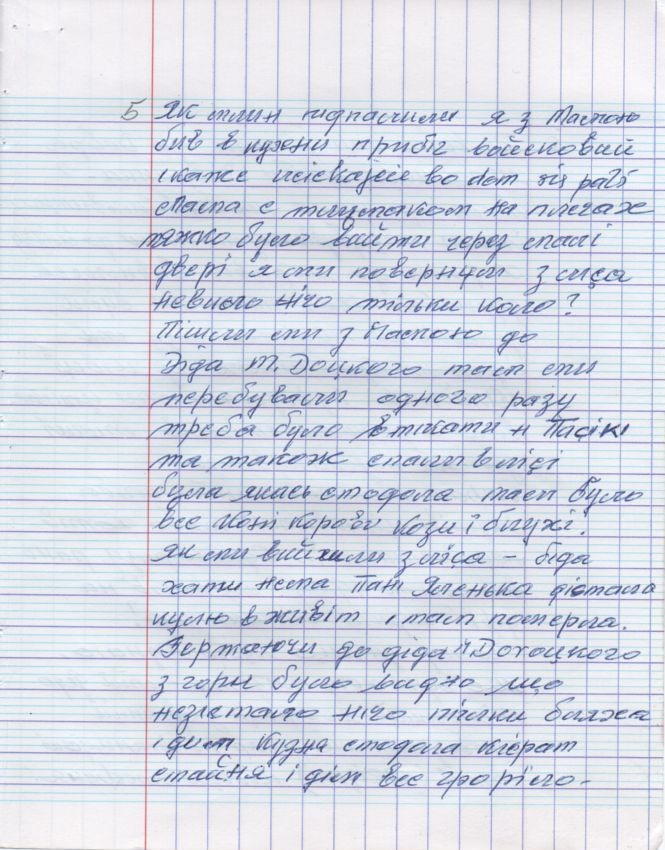 5 Як млин підпалили я з Мамою
був в кухни прибіг войсковий
і каже
мама с клумаком на плечах
тяжко було вийти через малі
двері як ми повернули з ліса
небуло нічо тільки коло?
Пішли ми з Мамою до
Діда М. Доцкого там ми
перебували одного разу
треба було втікати н Пасікі
та також спали в лісі
була якась стодола там було
все коні корови кози і блухі.
Як ми вийшли з ліса – біда
хати нема Пані Яленька дістала
кулю в живіт і там померла.
Вертаючи до діда Доцкого
з гори було видно що
незістало нічо тілки бляха
і дим кузня стодола кєрат
стайня і дім все згоріло –